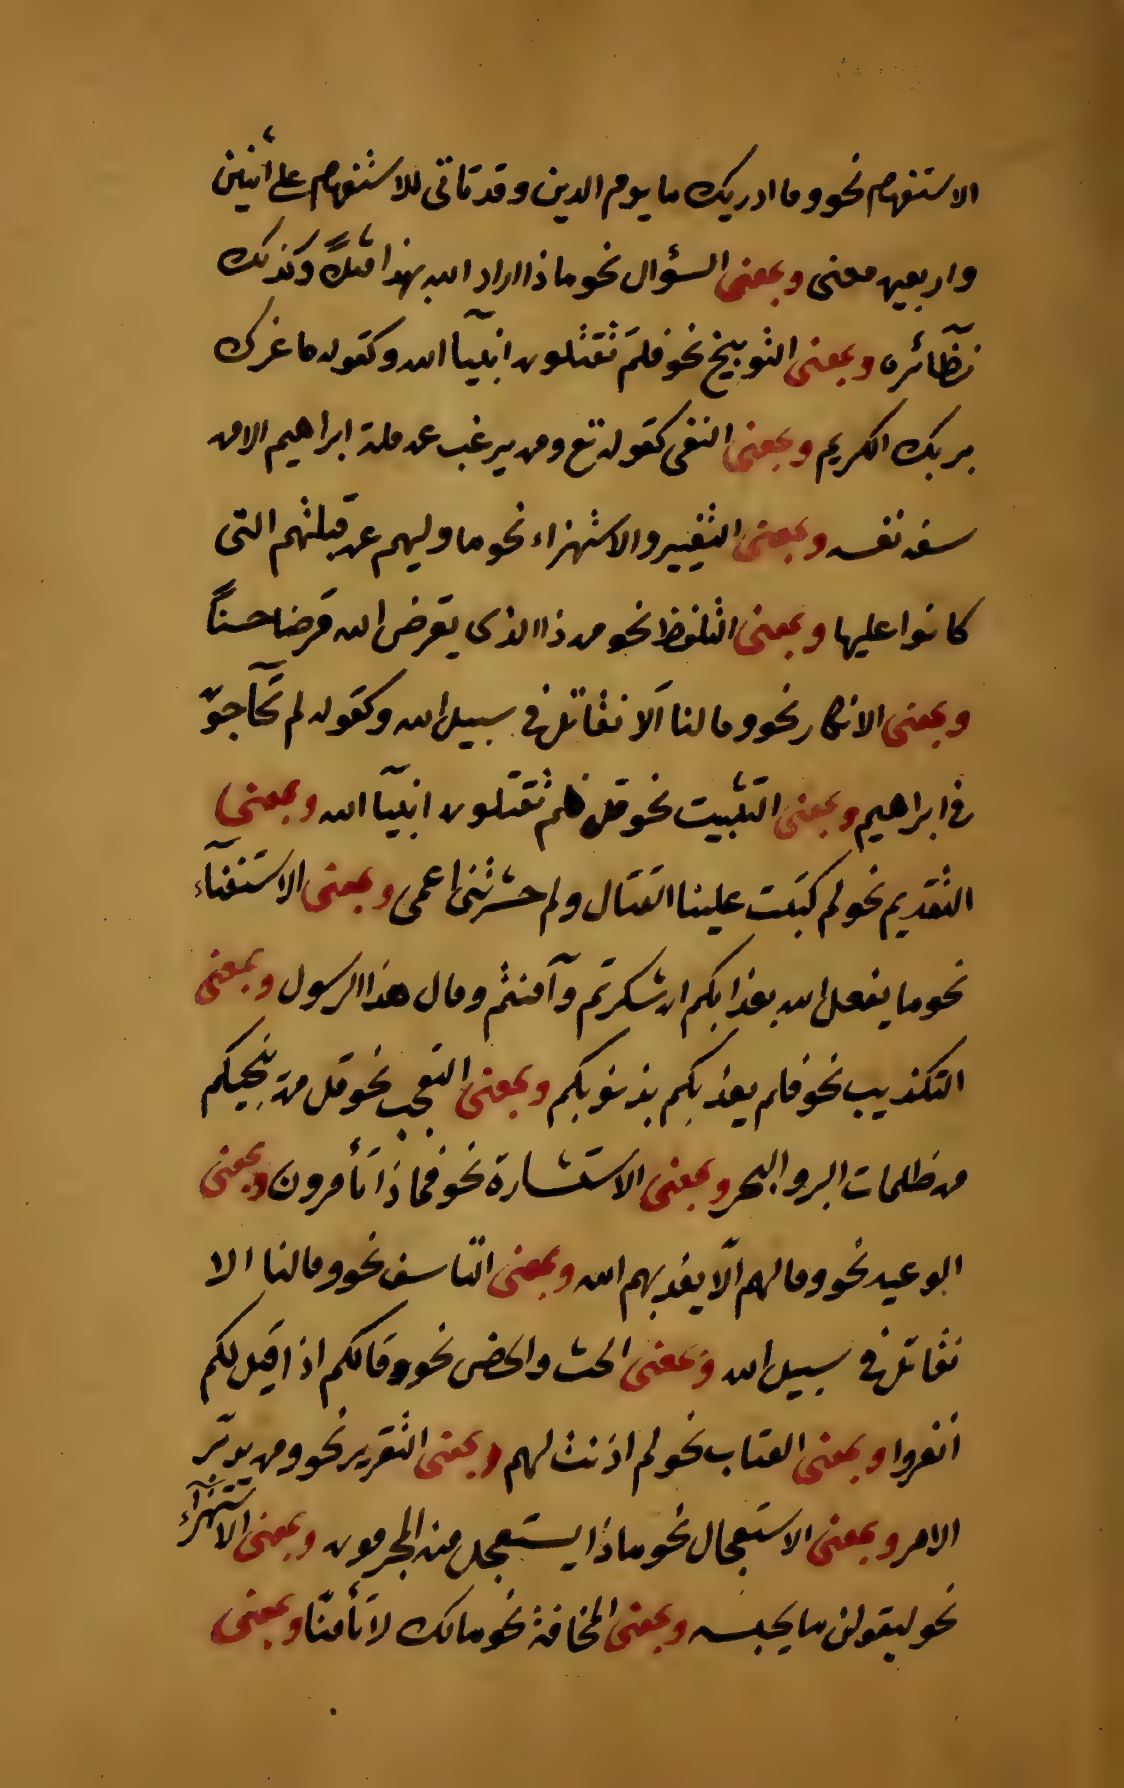 الاستفهام نحو وما ادريك ما يوم الدين وقد تاتى للاستفهام على اثنين
واربعين معنى وبمعنى السؤال نحو ماذا اراد الله بهذا مثلاً وكذلك
نظآئره وبمعنى التوبيخ نحو فلم تقتلون انبيآ الله وكقوله ما غرك
بربك الكريم وبمعنى النفى كقوله تع ومن يرغب عن ملة ابراهيم الا من
سفه نفسه وبمعنى التغيير والاستهزاء نحو ما وليهم عن قبلتهم التى
كانوا عليها وبمعنى التلفظ نحو من ذا الذى يقرض الله قرضا حسناً
وبمعنى الانكار نحو وما لنا ألا نقاتل فى سبيل الله وكقوله لم تحآجون
فى ابراهيم وبمعنى التثبيت نحو قل فلم تقتلون انبيآ الله وبمعنى
التقديم نحو لم كتبت علينا القتال ولم حشرتنى اعمى وبمعنى الاستغنآء
نحو ما يفعل الله بعذابكم ان شكرتم وآمنتم ومال هذا الرسول وبمعنى
التكذيب نحو فلم يعذبكم بذنوبكم وبمعنى التعجب نحو قل من ينجيكم
من ظلمات البر والبحر وبمعنى الاستشارة نحو فماذا تأمرون وبمعنى
الوعيد نحو وما لهم ألّا يعذبهم الله وبمعنى التاسف نحو وما لنا الا
نقاتل فى سبيل الله وبمعنى الحث والحض نحو ومالكم اذا قيل لكم
انفروا وبمعنى العتاب نحو لم اذنت لهم وبمعنى التقرير نحو ومن يدبّر
الامر وبمعنى الاستعجال نحو ماذا يستعجل منه المجرمون وبمعنى الاستهزآء
نحو ليقولن ما يحبسه وبمعنى المخافة نحو مالك لا تأمنّا وبمعنى